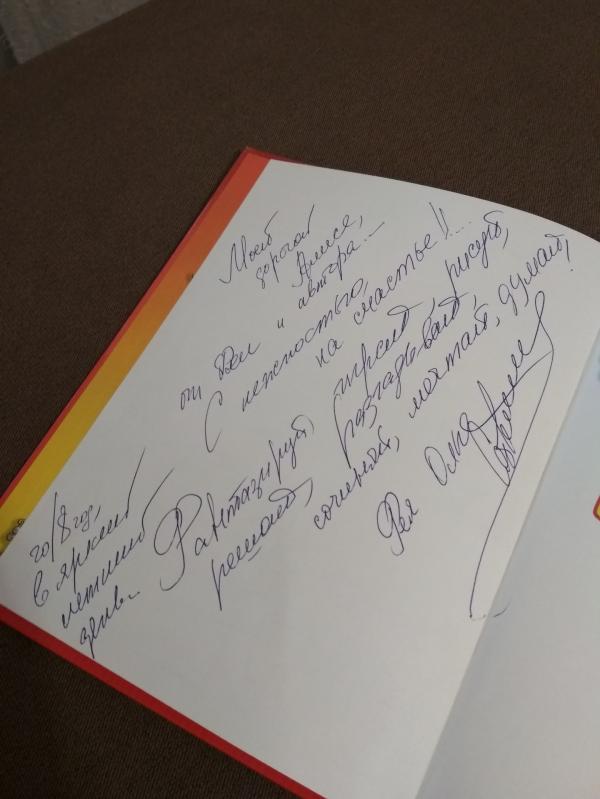 Моей
дорогой
Алисе,
от Феи и автора...
С нежностью,
на счастье!!...
Фантазируй, играй, рисуй,
решай, разгадывай,
сочиняй, мечтай, думай!
Фея Оля
2018 год,
в яркий
летний
день.